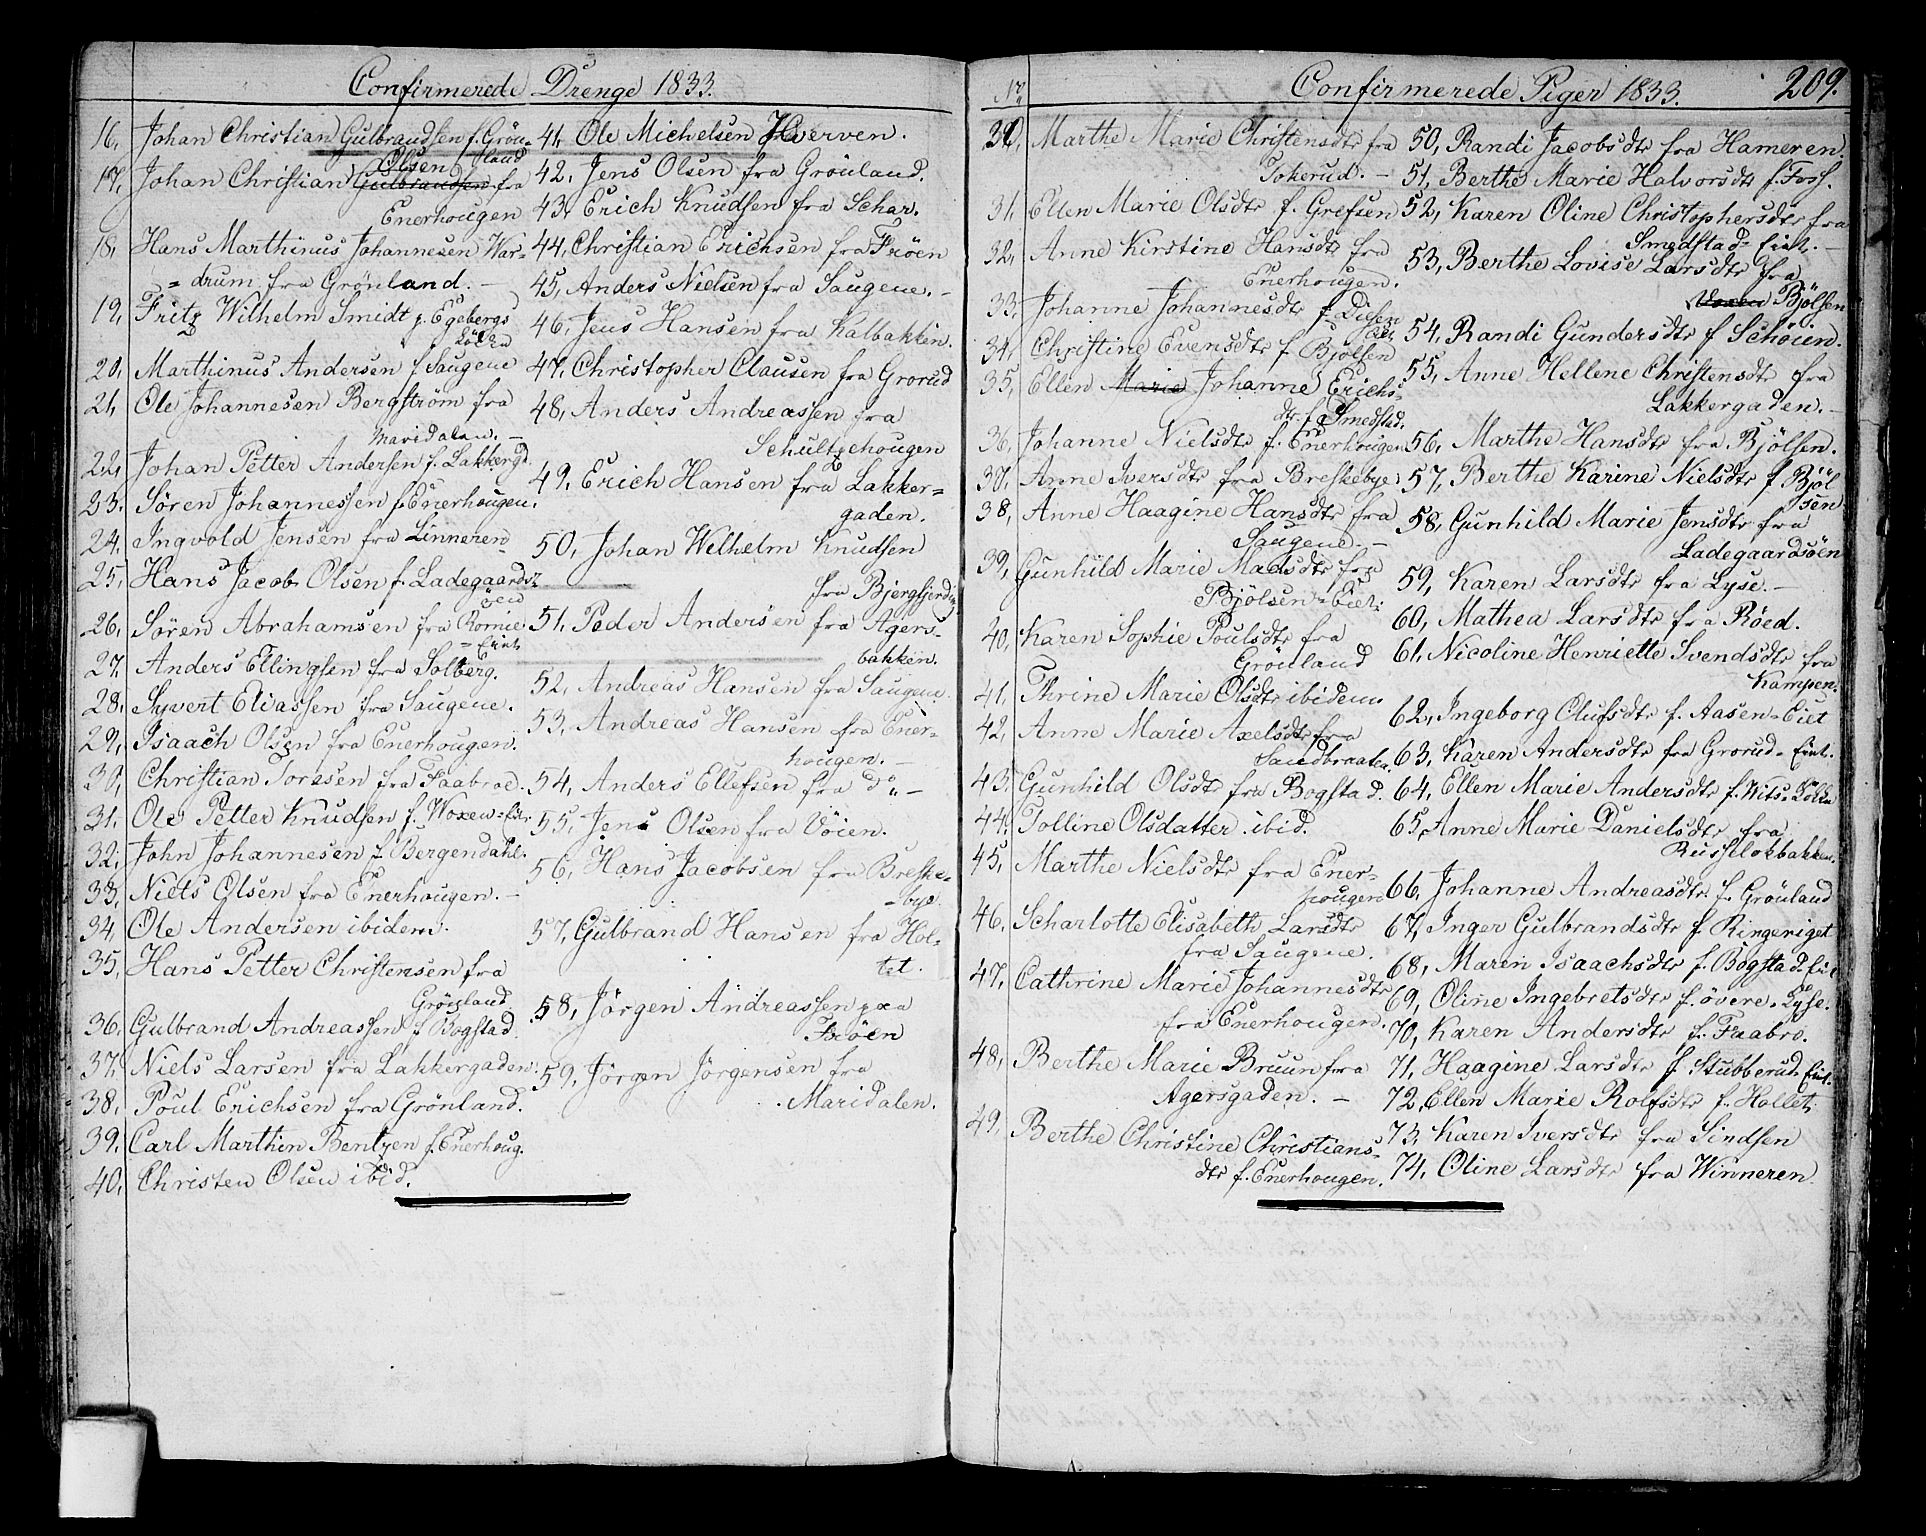 Confirmerede Drenge 1833.
16, Johan Christian Gulbrandsen f. Grön-
land
17, Johan Christian Olsen Gulbrandsen fra
Enerhougen
18, Hans Marthinus Johannesen War-
= drum fra Grönland. –
19, Fritz Wilhelm Smidt p. Egebergs
Löcka
20, Marthinus Andersen f Saugene
21, Ole Johannesen Bergström fra
Maridalen. –
22, Johan Petter Andersen f. Lakkergd.
23. Sören Johannessen f. Enerhougen.
24. Ingvold Jensen fra Linneren
25, Hans Jacob Olsen f. Ladegaards-
öen
26, Sören Abrahamsen fra Romie
= Eiet
27, Anders Ellingsen fra Solberg.
28, Syvert Eliassen fra Saugene.
29, Isaach Olsen fra Enerhougen.
30, Christian Toresen fra Faabroe.
31. Ole Petter Knudsen f. Woxen=Eie.
32, John Johannesen f. Bergendahl.
33, Niels Olsen fra Enerhougen. –
34, Ole Andersen ibidem.
35, Hans Petter Christensen fra
Grönland
36. Gulbrand Andreassen f Bogstad.
37, Niels Larsen fra Lakkergaden.
38. Poul Erichsen fra Grönland.
39. Carl Marthin Bentzen f. Enerhoug.
40, Christen Olsen ibid.
41, Ole Michelsen Hverven.
42, Jens Olsen fra Grönland.
43, Erich Knudsen fra Schar.
44, Christian Erichsen fra Fröen
45, Anders Nielsen fra Saugene. –
46, Jens Hansen fra Kalbakken.
47, Christopher Clausen fra Grorud
48, Anders Andreassen fra
Schultzehougen
49, Erich Hansen fra Lakker=
gaden.
50, Johan Welhelm Knudsen
fra Bjergfjerding
51, Peder Andersen fra Agers-
bakken.
52, Andreas Hansen fra Saugene.
53, Andreas Hansen fra Ener-
hougen. –
54, Anders Ellefsen fra do –
55, Jens Olsen fra Vöien.
56, Hans Jacobsen fra Breske-
=bye.
57, Gulbrand Hansen fra Hol-
tet.
58, Jörgen Andreassen paa
Fröen
59, Jörgen Jörgensen fra
Maridalen.
No Confirmerede Piger 1833. 209.
30, Marthe Marie Christensdtr fra
Tokerud. –
31, Ellen Marie Olsdtr f. Grefsen
32, Anne Kirstine Hansdtr fra
Enerhougen.
33, Johanne Johannesdtr f. Disen
34, Christine Evensdtr f Bjölsen
35, Ellen Marie Johanne Erichs-
dtr. f. Smedstad.
36, Johanne Nielsdtr f. Enerhougen
37. Anne Iversdtr fra Breskebye
38, Anne Haagine Hansdtr fra
Saugene. –
39, Gunhild Marie Madsdtr fra
Bjölsen=Eiet.
40, Karen Sophie Poulsdtr fra
Grönland
41, Thrine Marie Olsdtr ibidem
42, Anne Marie Axelsdtr fra
Sandbraaten.
43. Gunhild Olsdtr fra Bogstad.
44. Tolline Olsdatter ibid.
45, Marthe Nielsdtr fra Ener-
hougen
46, Scharlotte Elisabeth Larsdtr
fra Saugene.
47, Cathrine Marie Johannesdtr
fra Enerhougen.
48, Berthe Marie Bruun fra
Agersgaden. –
49, Berthe Christine Christians-
dtr f. Enerhougen.
50, Randi Jacobsdtr fra Hameren.
51, Berthe Marie Halvorsdtr f. Foss.
52, Karen Oline Christophersdtr fra
Smedstad=Eiet. –
53, Berthe Lovise Larsdtr fra
Voxen Bjölsen
54, Randi Gundersdtr f Schöien.
55, Anne Hellene Christensdtr fra
Lakkergaden. –
56, Marthe Hansdtr fra Bjölsen.
57, Berthe Karine Nielsdtr f Bjöl
sen
58, Gunhild Marie Jensdtr fra
Ladegaardsöen
59, Karen Larsdtr fra Lyse. –
60, Mathea Larsdtr fra Röed.
61, Nicoline Henriette Svendsdtr fra
Kampen.
62, Ingeborg Olufsdtr f. Aasen=Eiet
63, Karen Andersdtr fra Grorud=Eiet.
64, Ellen Marie Andersdtr f. Wits=Lökke
65, Anne Marie Danielsdtr fra
Russelökbakken.
66, Johanne Andreasdtr f. Grönland
67, Inger Gulbrandsdtr f. Ringeriget
68, Maren Isaachsdtr f. Bogstad=Eiet
69, Oline Ingebretsdtr f. övere=Lyse.
70, Karen Andersdtr f. Faabro.
71, Haagine Larsdtr f Stubberud=Eiet.
72, Ellen Marie Rolfsdtr f. Holtet.
73, Karen Iversdtr fra Sindsen
74, Oline Larsdtr fra Winneren.